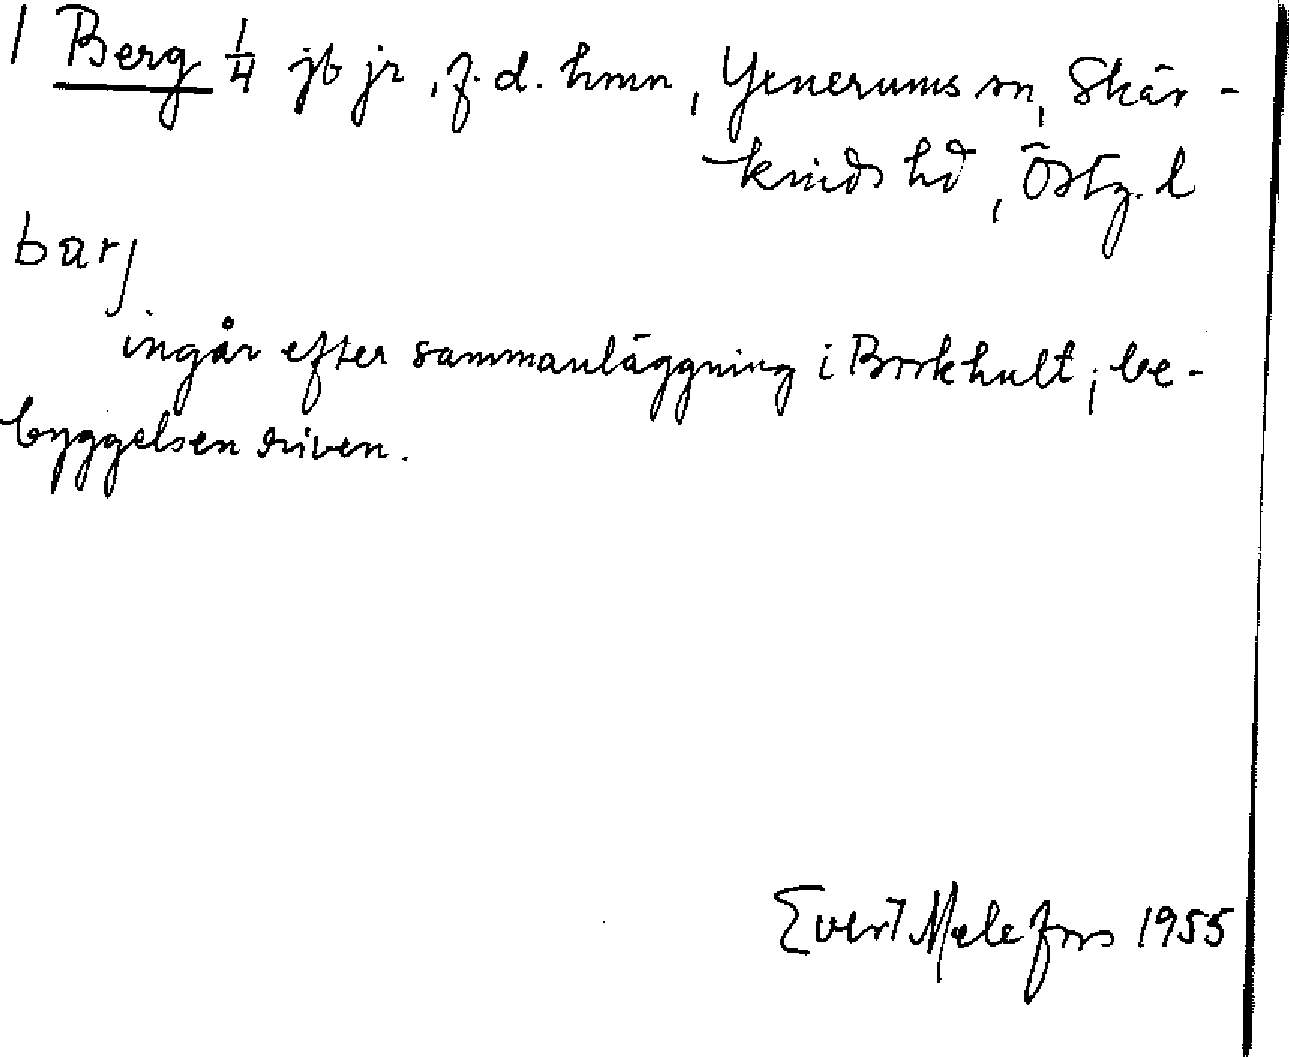 1 Berg 1/4 jb jr, f. d. hmn, Yxnerums sn, Skär-
kinds hd, Östg. l
barj
ingår efter sammanläggning i Borkhult; be-
byggelsen riven.
Evert Melefors 1955